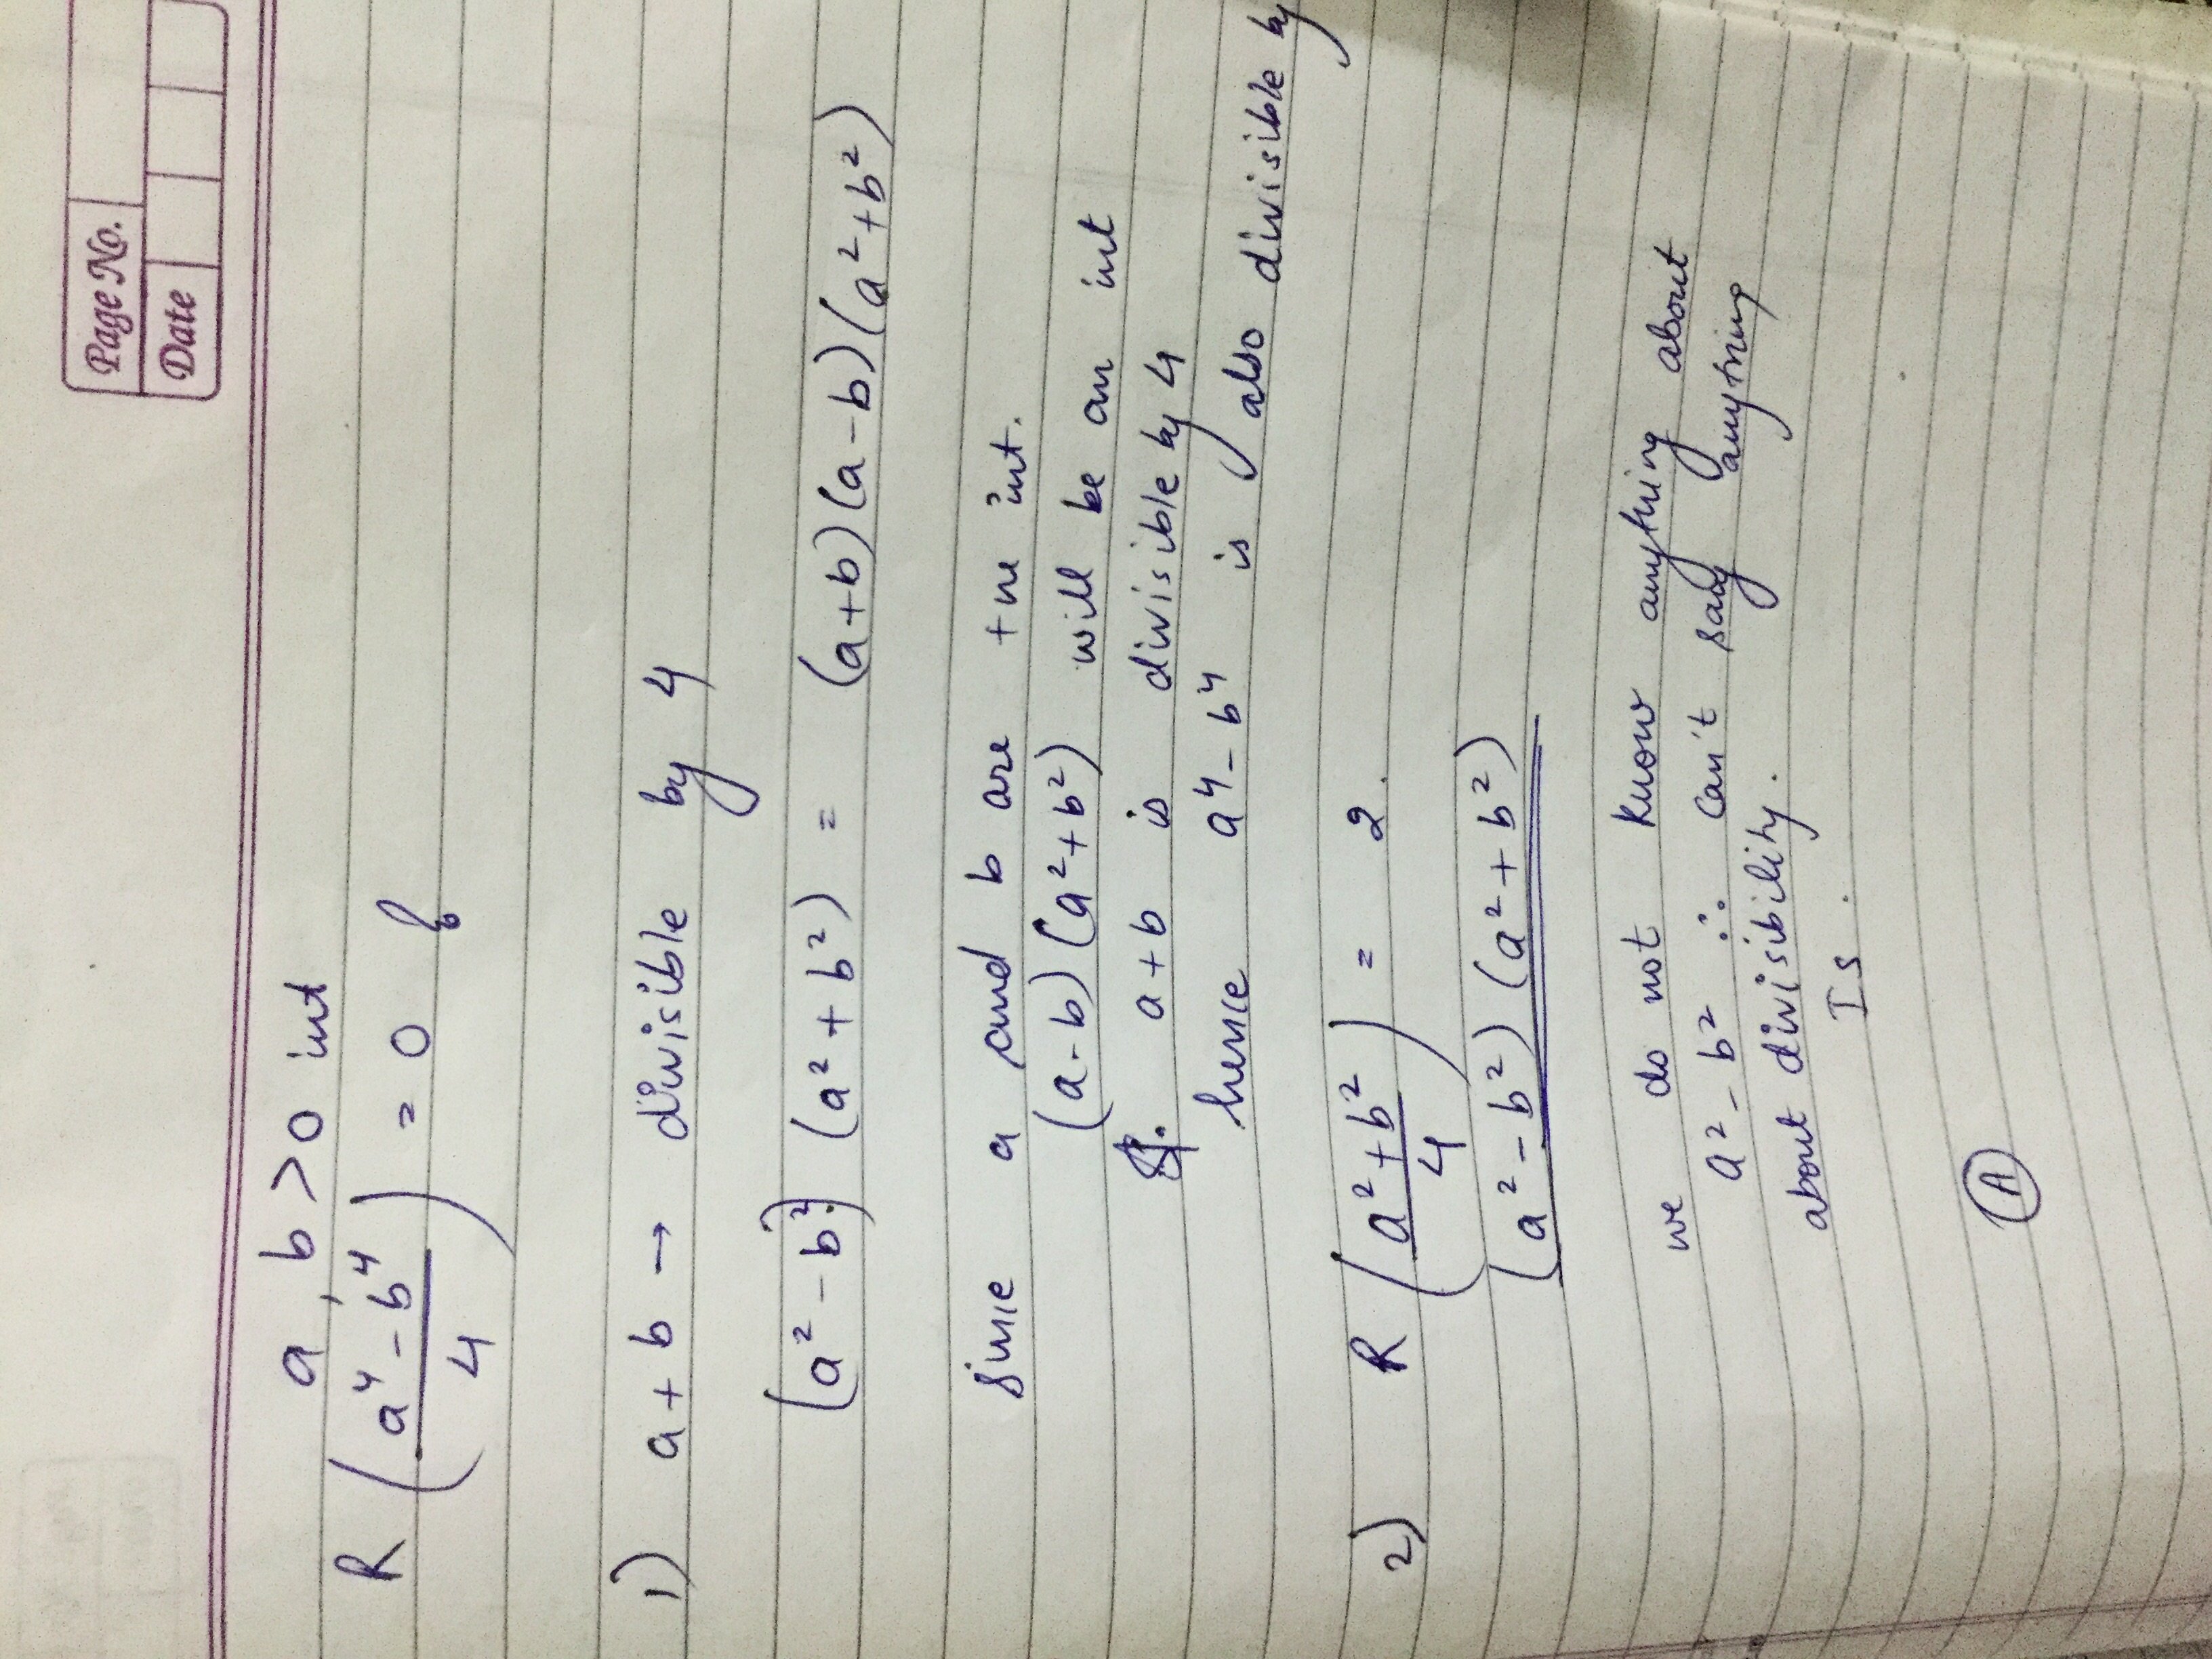 Page No.
Date
a, b > 0 int
R (a⁴ - b⁴ / 4) = 0
1) a + b → divisible by 4
(a² - b²) (a² + b²) = (a+b)(a-b)(a²+b²)
since a and b are +ve int.
(a-b)(a²+b²) will be an int
a+b is divisible by 4
hence a⁴-b⁴ is also divisible by
2) R (a² + b² / 4) = 2.
(a² - b²) (a² + b²)
we do not know anything about
a² - b² ∴ can't say anything
about divisibility.
IS.
A